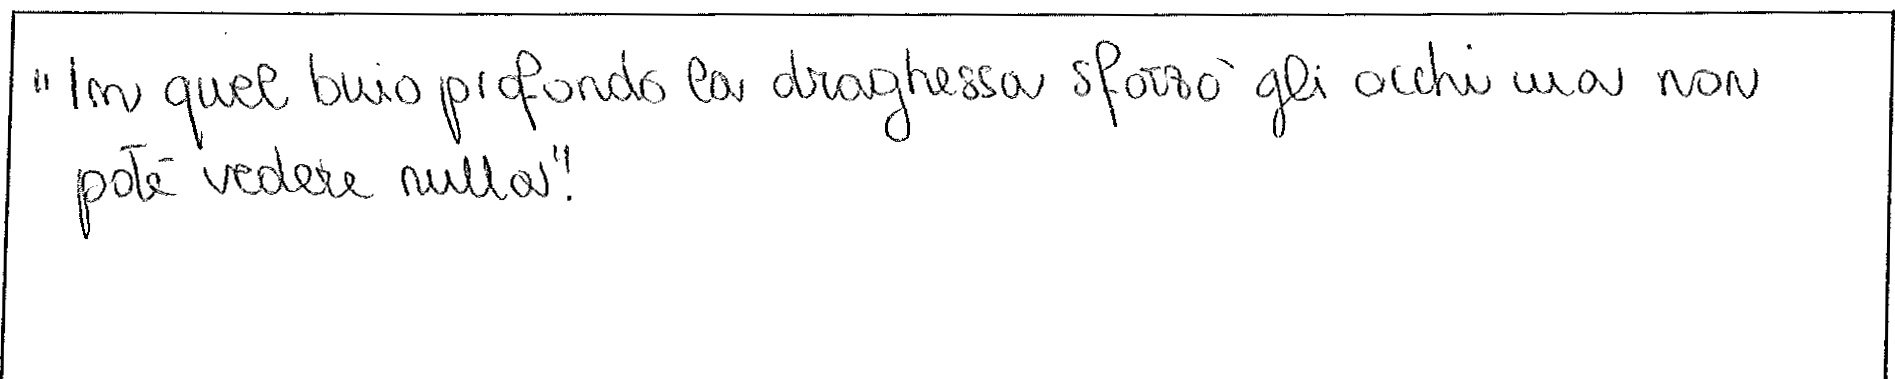 "In quel buio profondo la draghessa sforzò gli occhi ma non
poté vedere nulla"!